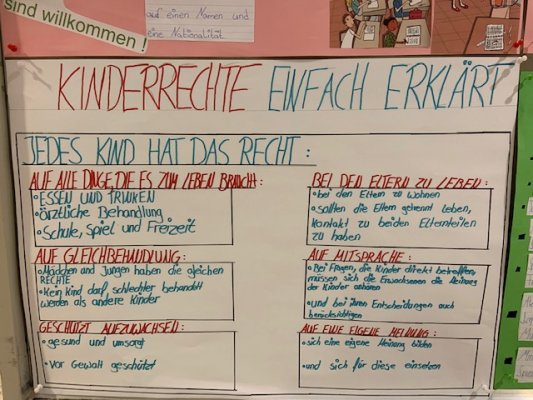 sind willkommen!
auf einen Namen und
eine Nationalität
KINDERRECHTE EINFACH ERKLÄRT
JEDES KIND HAT DAS RECHT:
AUF ALLE DINGE, DIE ES ZUM LEBEN BRAUCHT:
• ESSEN UND TRINKEN
• ärztliche Behandlung
• Schule, Spiel und Freizeit
AUF GLEICHBEHANDLUNG:
• Mädchen und Jungen haben die gleichen
RECHTE
• Kein Kind darf schlechter behandelt
werden als andere Kinder
GESCHÜTZT AUFZUWACHSEN:
• gesund und umsorgt
• vor Gewalt geschützt
BEI DEN ELTERN ZU LEBEN:
• bei den Eltern zu wohnen
• sollten die Eltern getrennt leben,
Kontakt zu beiden Elternteilen
zu haben
AUF MITSPRACHE:
• Bei Fragen, die Kinder direkt betreffen,
müssen sich die Erwachsenen die Meinung
der Kinder anhören
• und bei ihren Entscheidungen auch
berücksichtigen
AUF EINE EIGENE MEINUNG:
• sich eine eigene Meinung bilden
• und sich für diese einsetzen